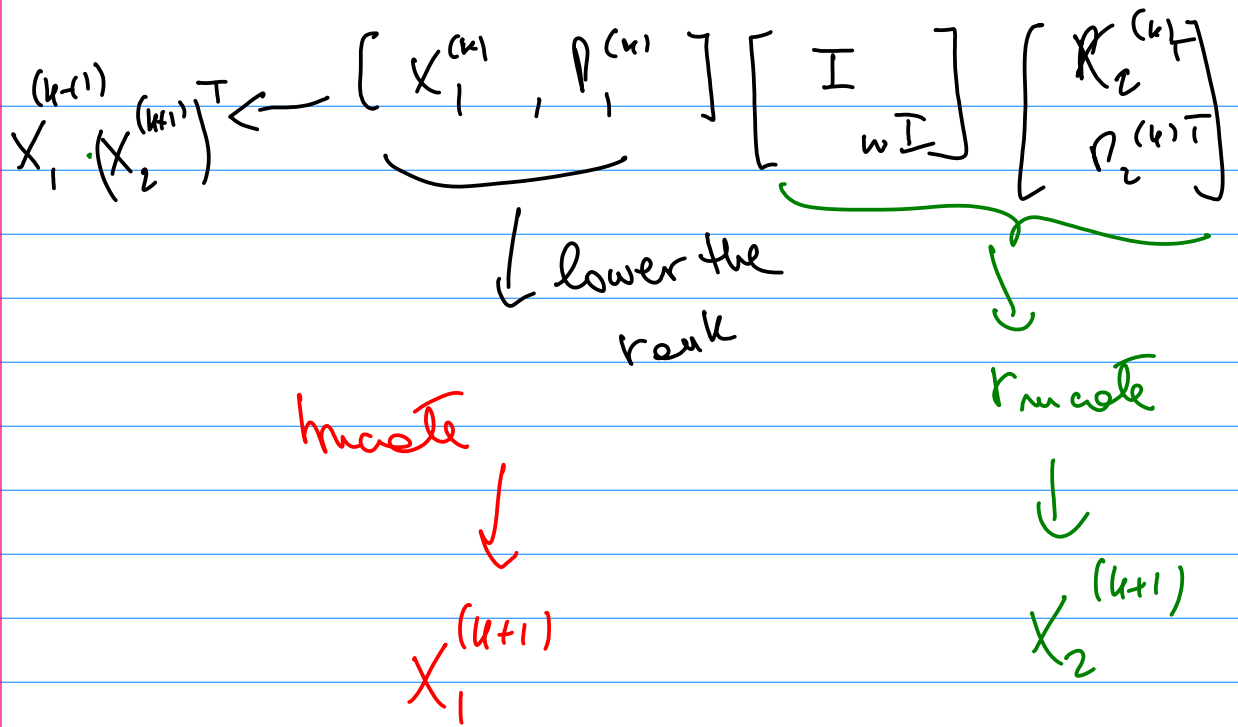 X₁^(k+1) · (X₂^(k+1))^T ← [ X₁^(k) , P₁^(k) ] [ I
ωI ] [ X₂^(k)T
P₂^(k)T ]
lower the
rank
truncate
truncate
X₁^(k+1)
X₂^(k+1)